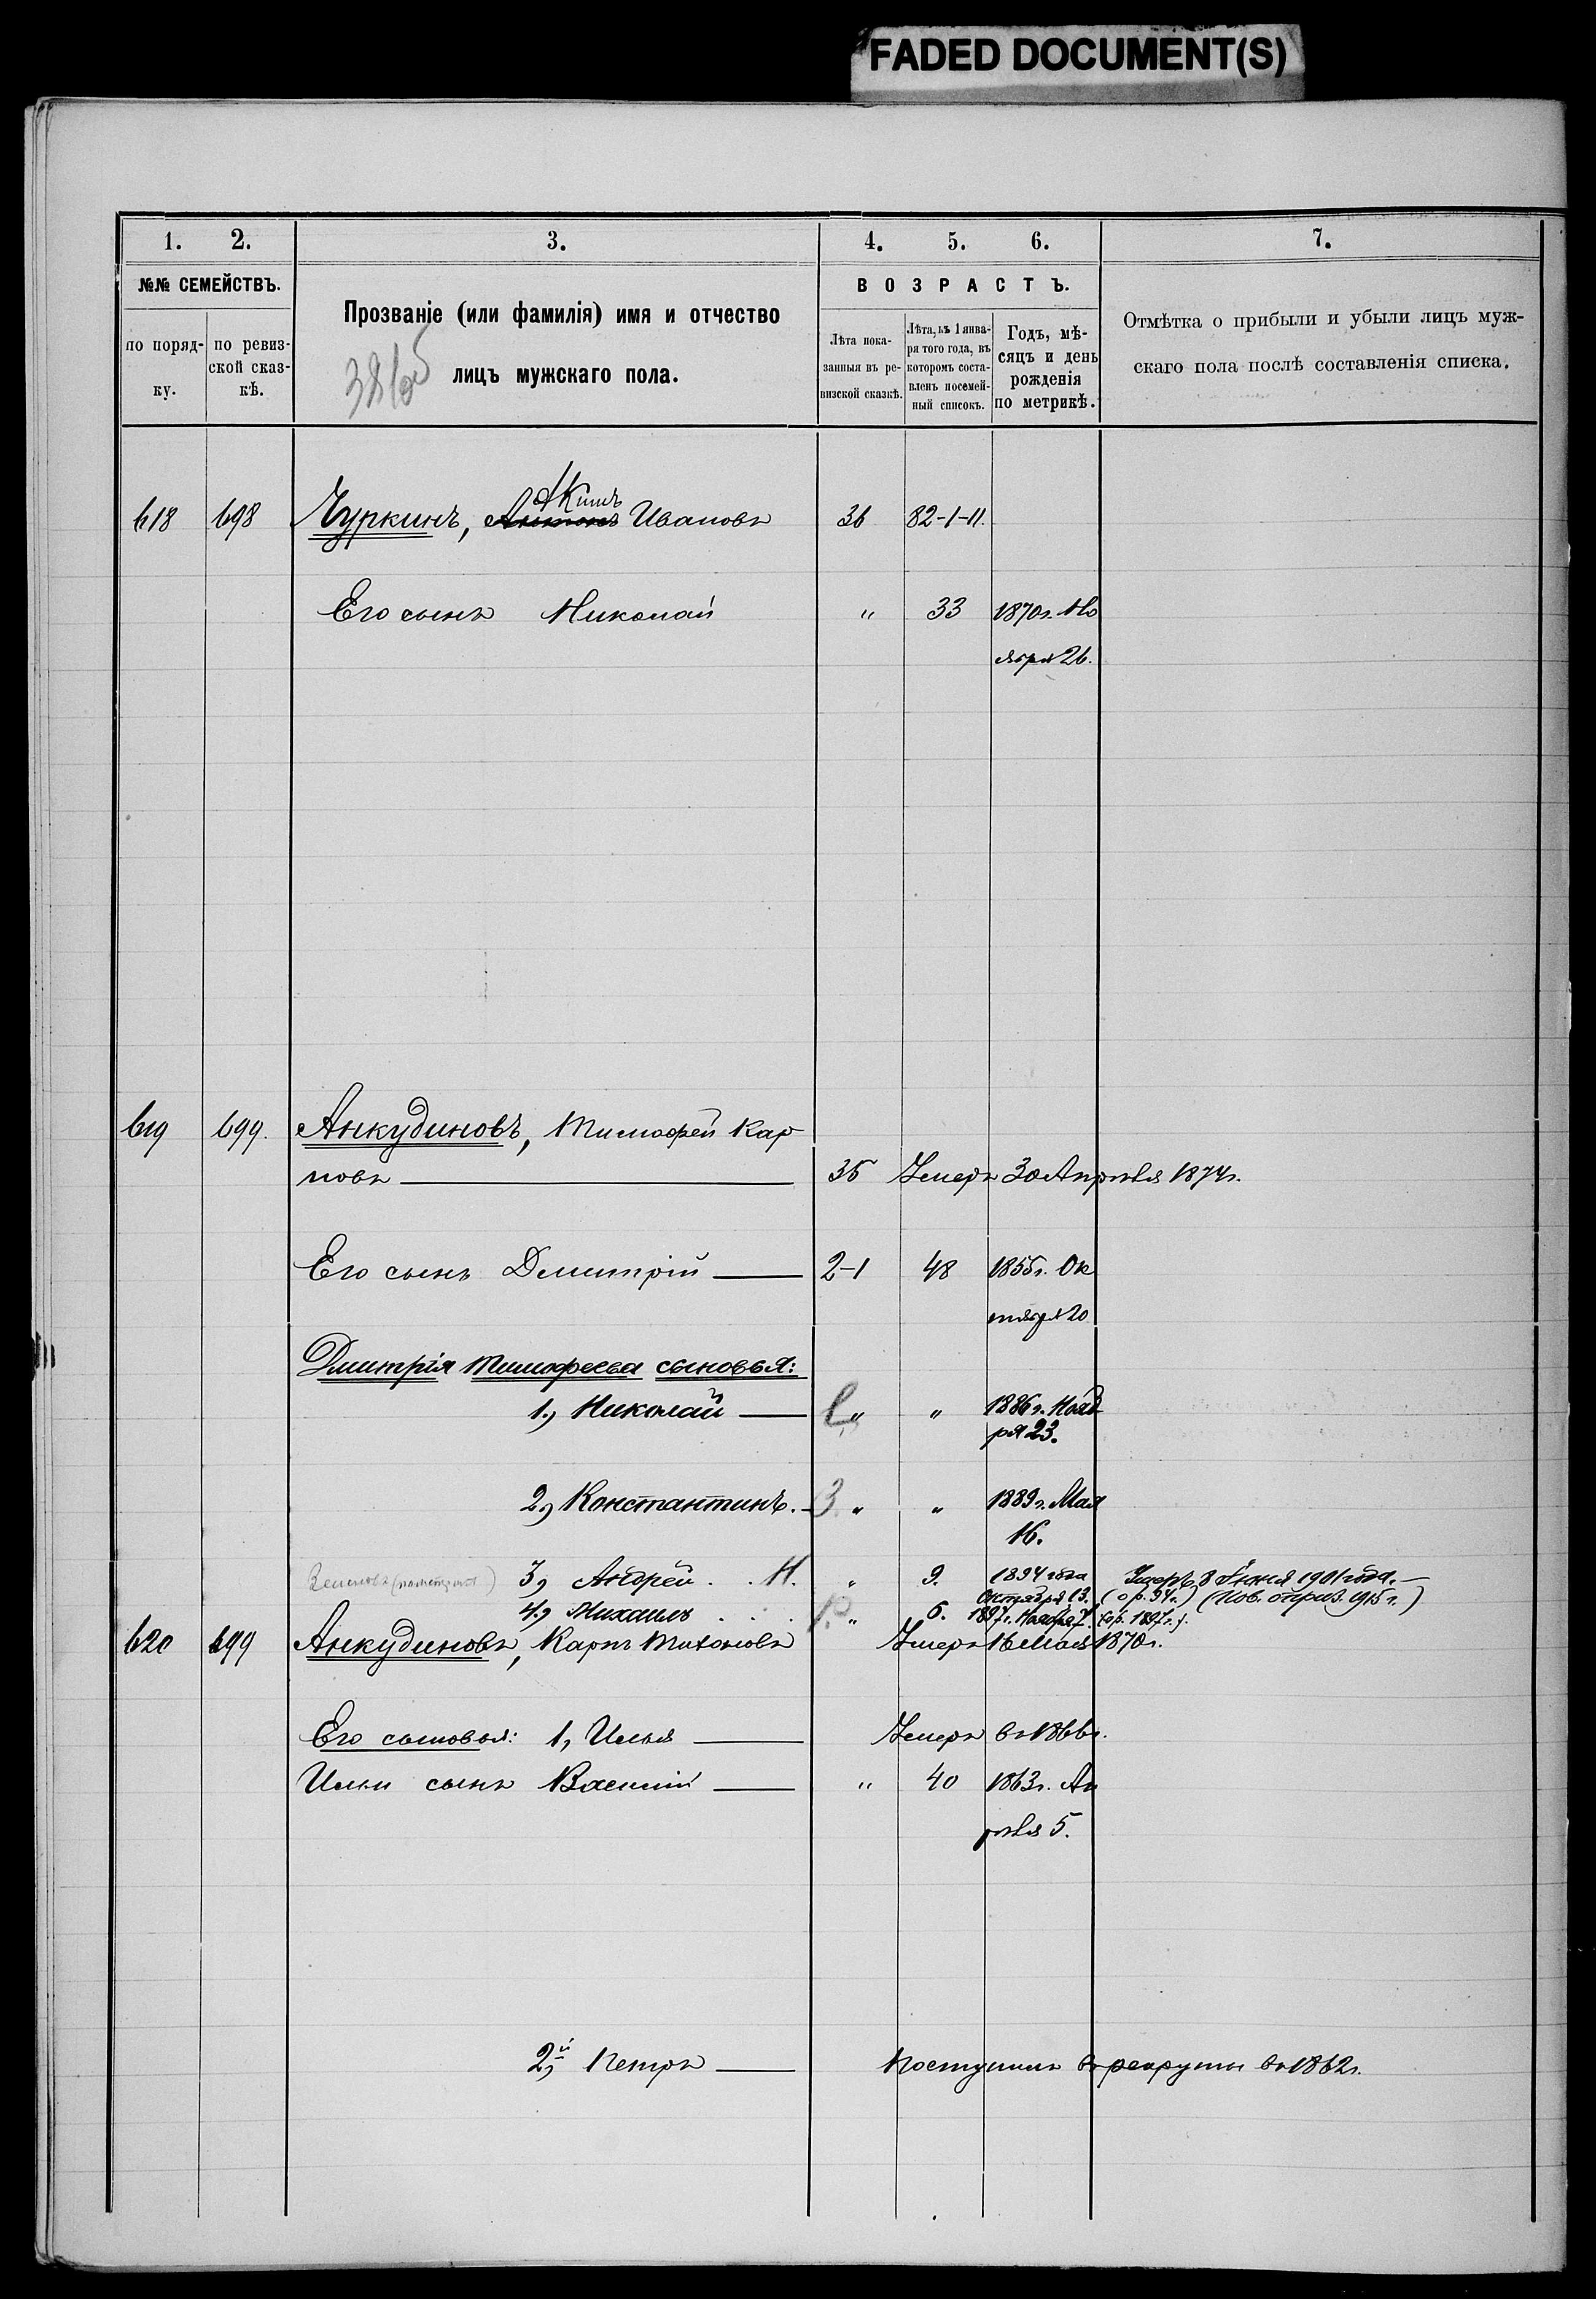 FADED DOCUMENT(S)
1. 2. 3. 4. 5. 6. 7.
№№ СЕМЕЙСТВЪ.
по поряд-
ку.
по ревиз-
ской сказ-
кѣ.
Прозваніе (или фамилія) имя и отчество
лицъ мужскаго пола.
ВОЗРАСТЪ.
Лѣта пока-
занныя въ ре-
визской сказкѣ.
Лѣта, къ 1 янва-
ря того года, въ
котором​ъ соста-
вленъ посемей-
ный списокъ.
Годъ, мѣ-
сяцъ и день
рожденія
по метрикѣ.
Отмѣтка о прибыли и убыли лицъ муж-
скаго пола послѣ составленія списка.
Акимъ
618 698 Чуркинъ, Антонъ Ивановъ 36 82-1-11.
Его сынъ Николай " 33 1870г. Но
ября 26.
619 699. Анкудиновъ, Тимофей Кар
повъ 35 Умеръ 30 Апрѣля 1874г.
Его сынъ Дмитрій 2-1 48 1855г. Ок
тября 20
Дмитрія Тимофеева сыновья:
1, Николай " " 1886г. Нояб
ря 23.
2, Константинъ. 3 " " 1889г. Мая
16.
3, Андрей . . Н. " 9. 1894 года Умеръ 8 Июня 1901 года.
Октября 13. (о р. 94г.) (Нов. оприз. 1915г.)
4, Михаилъ . . . " 6. 1897г. Ноября 7. (о р. 1897г.).
620 699 Анкудиновъ, Карпъ Тихоновъ Умеръ 16 Мая 1870г.
Его сыновья: 1, Илья Умеръ въ 1866г.
Ильи сынъ Василій " 40 1863г. Ап
рѣля 5.
2й, Петръ Поступилъ въ рекруты въ 1862г.